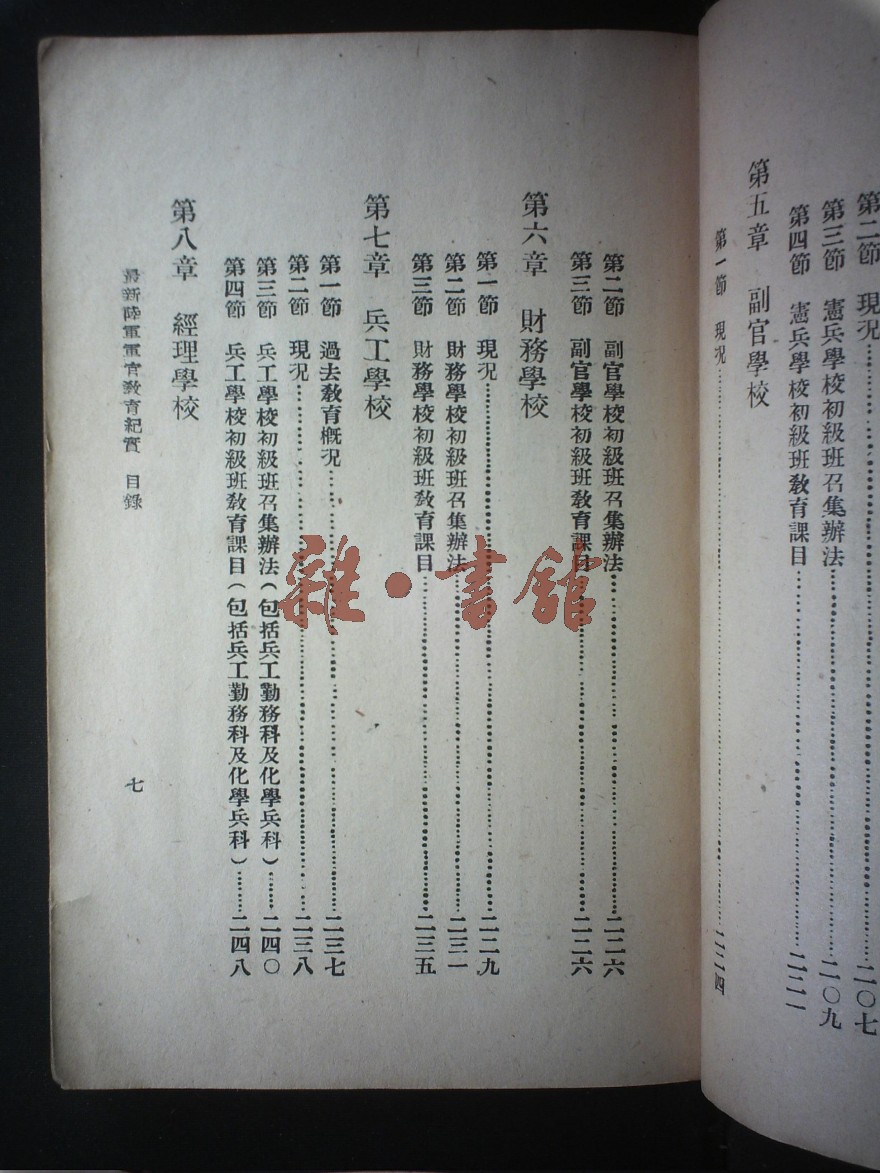 第二節 現況……二〇七
第三節 憲兵學校初級班召集辦法……二〇九
第四節 憲兵學校初級班教育課目
第五章 副官學校
第一節 現況……二二四
第二節 副官學校初級班召集辦法……二二六
第三節 副官學校初級班教育課目……二二六
第六章 財務學校
第一節 現況……二二九
第二節 財務學校初級班召集辦法……二三一
第三節 財務學校初級班教育課目……二三五
第七章 兵工學校
第一節 過去教育概況……二三七
第二節 現況……二三八
第三節 兵工學校初級班召集辦法(包括兵工勤務科及化學兵科)……二四〇
第四節 兵工學校初級班教育課目(包括兵工勤務科及化學兵科)……二四八
第八章 經理學校
最新陸軍軍官教育紀實 目錄
七
雜·書館